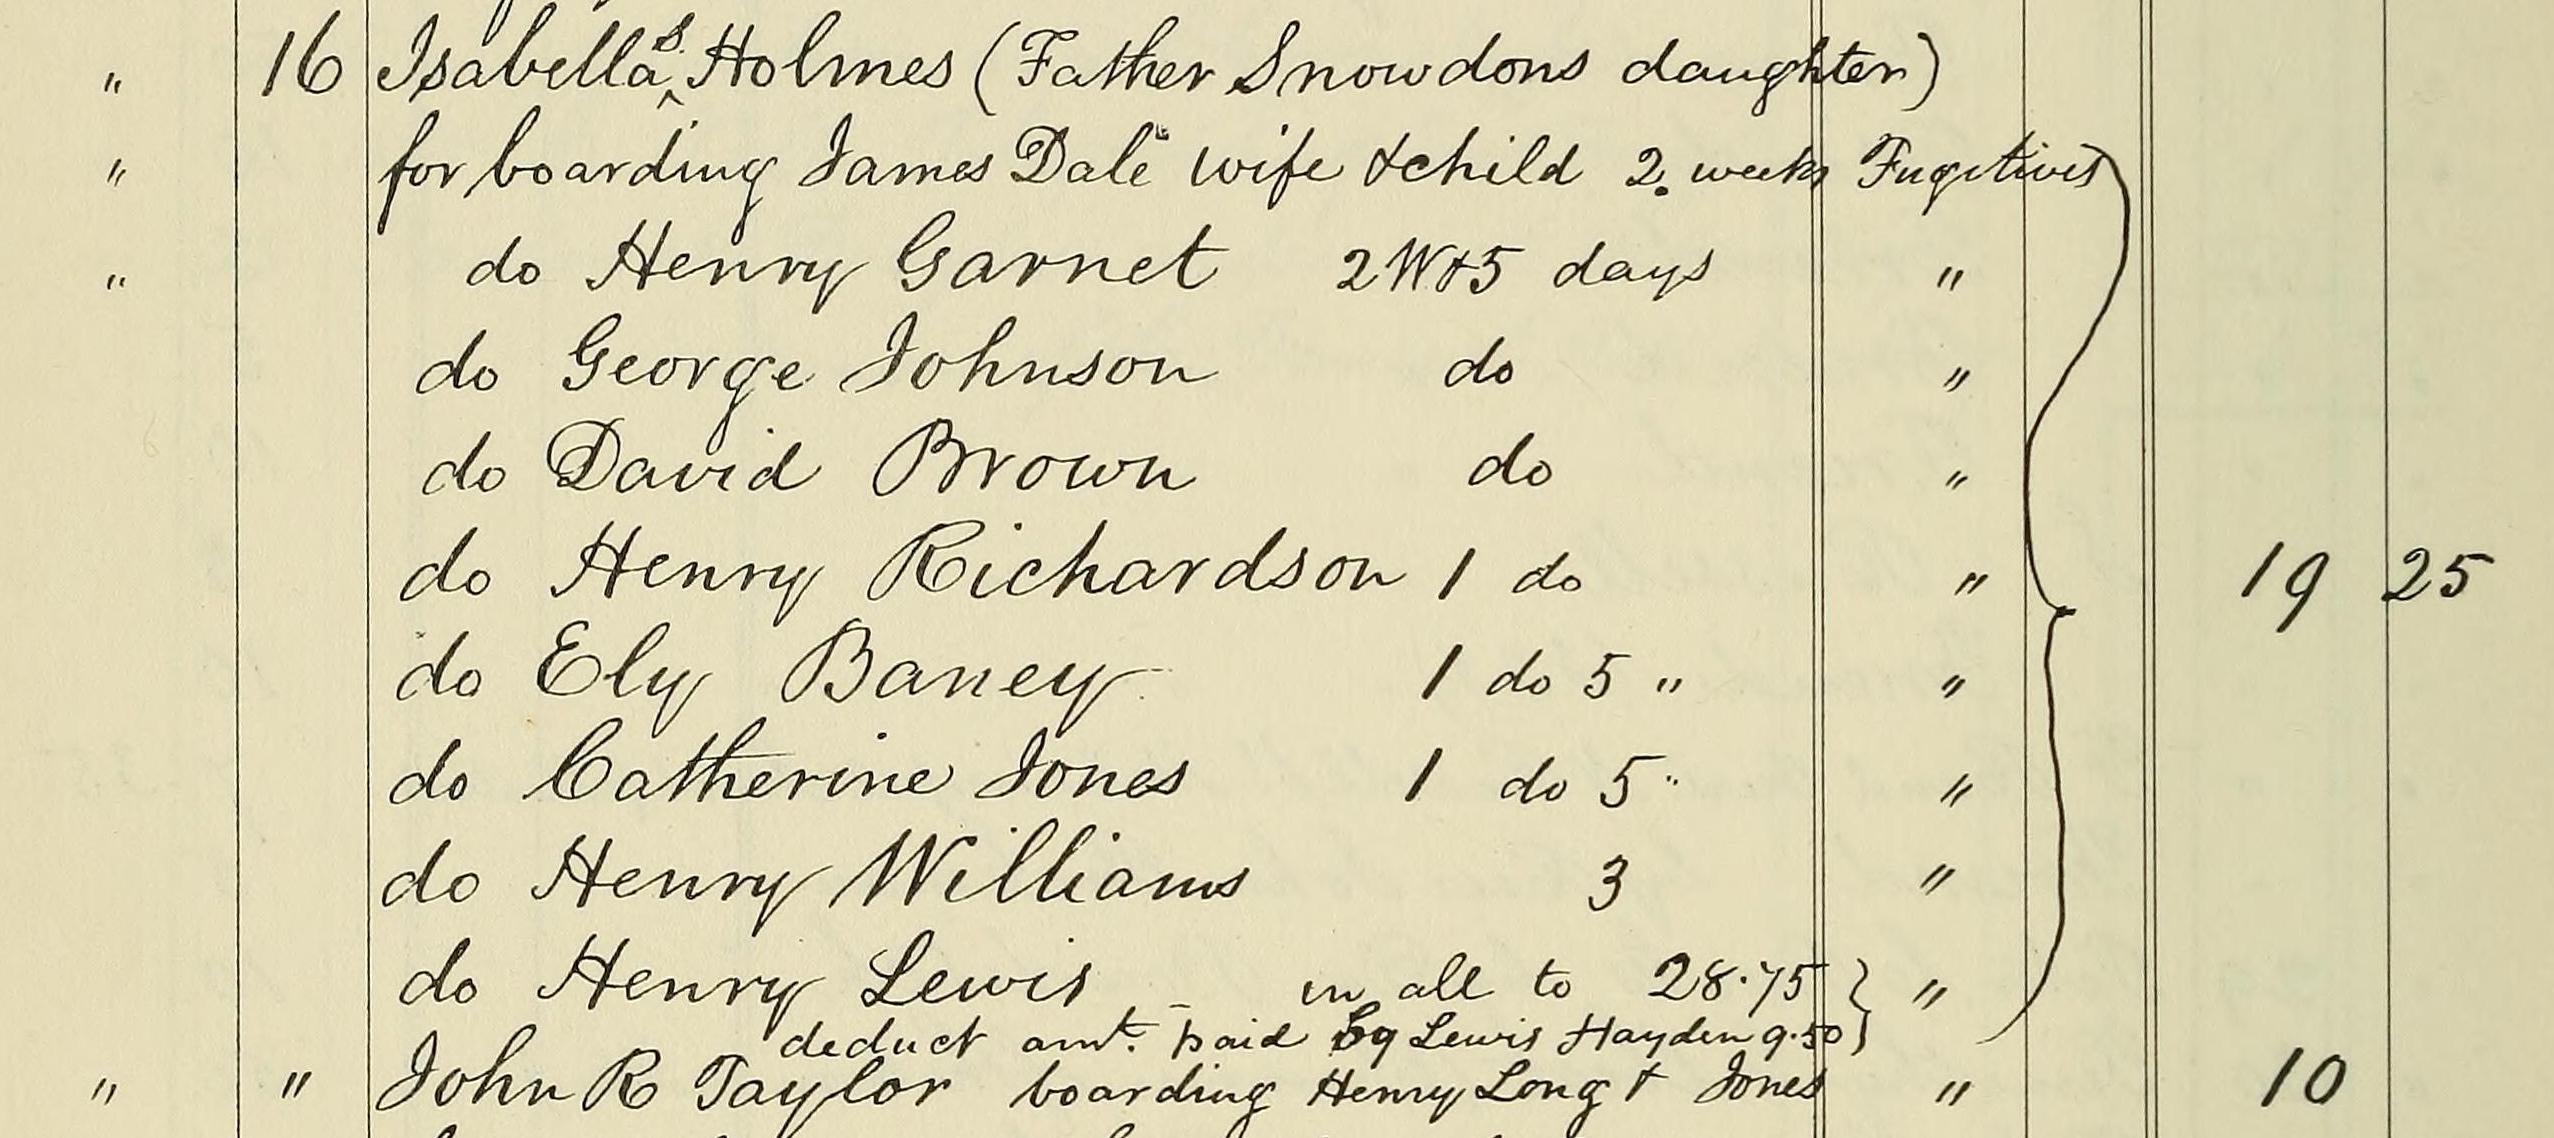 " 16 Isabella S. Holmes (Father Snowdons daughter)
" for boarding James Dale wife & child 2. weeks Fugitives
" do Henry Garnet 2 W & 5 days "
do George Johnson do "
do David Brown do "
do Henry Richardson 1 do " 19 25
do Ely Baney 1 do 5 " "
do Catherine Jones 1 do 5 " "
do Henry Williams 3 "
do Henry Lewis in all to 28.75 "
deduct amt. paid by Lewis Hayden 9.50
" " John R Taylor boarding Henry Long & Jones " 10